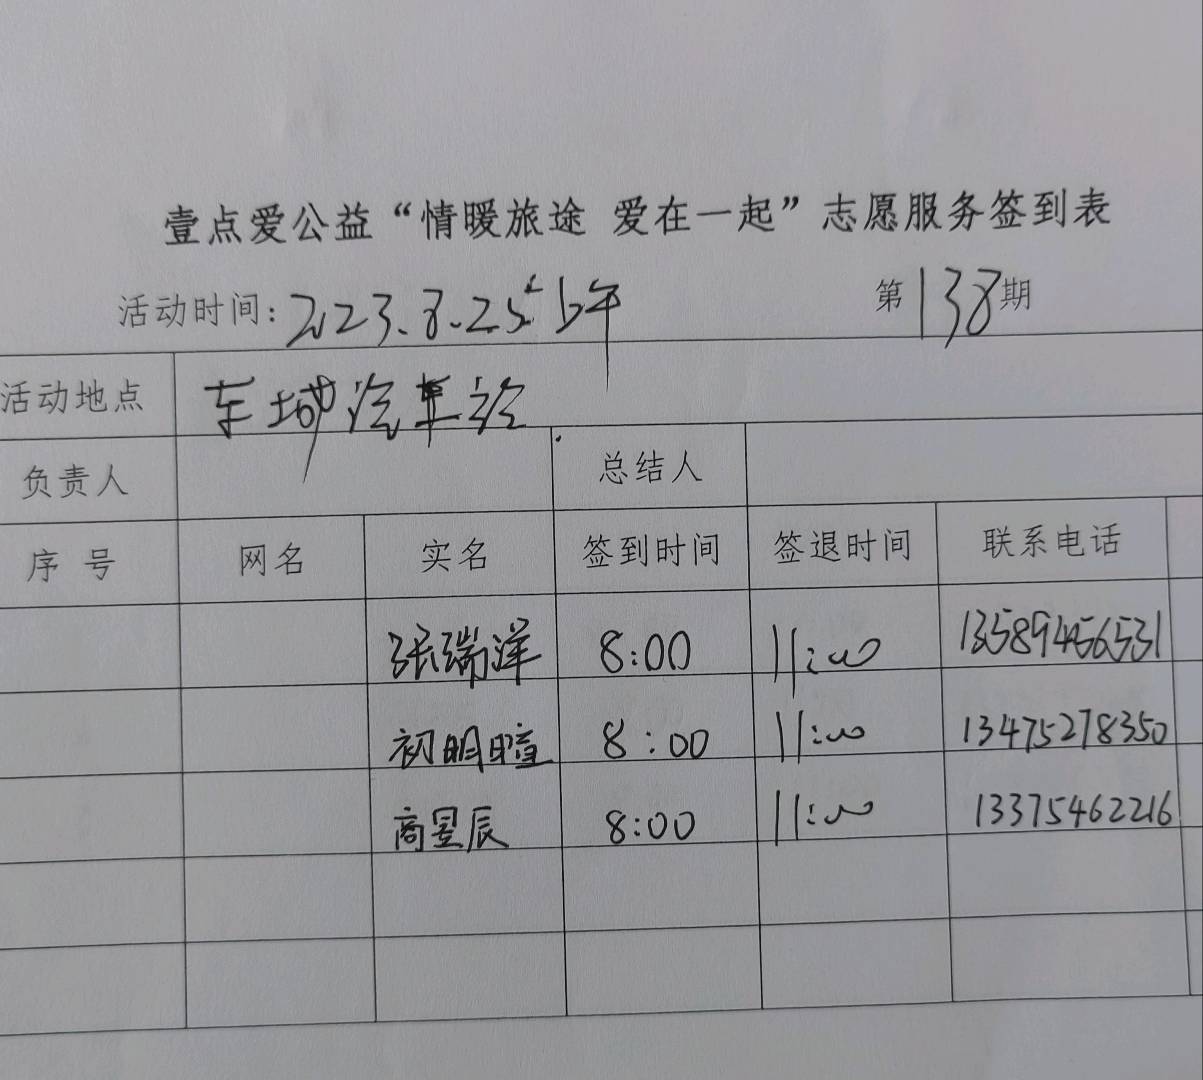 壹点爱公益“情暖旅途 爱在一起”志愿服务签到表
活动时间: 2023.8.25 上午 第138期
活动地点 车城汽车站
负责人 总结人
序号 网名 实名 签到时间 签退时间 联系电话
张瑞洋 8:00 11:00 13589456531
初明暄 8:00 11:00 13475278350
商昱辰 8:00 11:00 13375462216